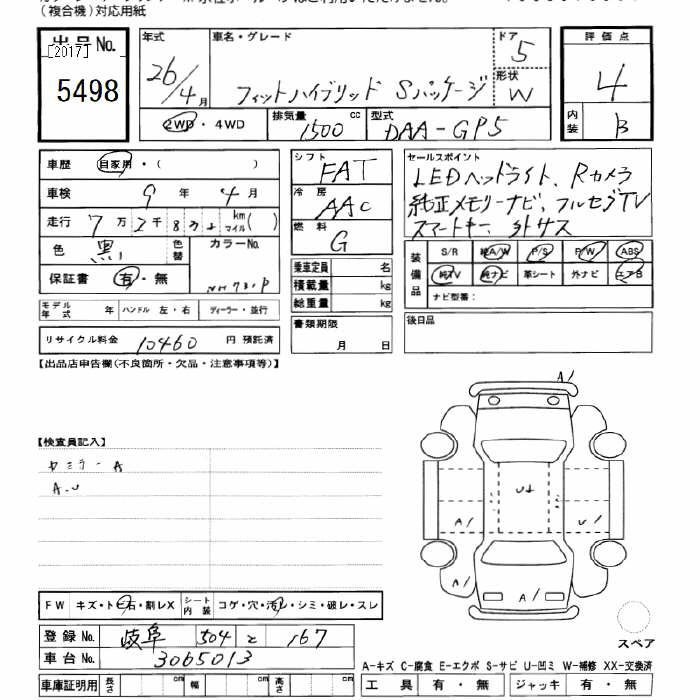 (複合機)対応用紙
出品No.
[2017]
5498
年式
26/4月
車名・グレード
フィットハイブリッド Sパッケージ
ドア
5
形状
W
2WD・4WD
排気量 1500 cc
型式 DAA-GP5
評価点
4
内装 B
車歴 自家用・( )
車検 9年 4月
走行 7万3千8百 km マイル( )
色 黒 色替
カラーNo.
NH731P
保証書 有・無
モデル年式 年 ハンドル 左・右 ディーラー・並行
リサイクル料金 10460 円 預託済
シフト FAT
冷房 AAC
燃料 G
乗車定員 名
積載量 kg
総重量 kg
書類期限
月 日
セールスポイント
LEDヘッドライト、Rカメラ
純正メモリーナビ、フルセグTV
スマートキー、
装備品
S/R 純A/W P/S P/W ABS
純TV 純ナビ 革シート 外ナビ エアB
ナビ型番:
後日品
【出品店申告欄(不良箇所・欠品・注意事項等)】
【検査員記入】
A
A.U
A/
U
A/
U/
A/
A/
A/
FW キズ・トビ石・割レX シート内装 コゲ・穴・汚レ・シミ・破レ・スレ
登録No. 岐阜 504 と 167
車台No. 3065013
車庫証明用 長さ cm 幅 cm 高さ cm
スペア
A-キズ C-腐食 E-エクボ S-サビ U-凹ミ W-補修 XX-交換済
工具 有・無 ジャッキ 有・無